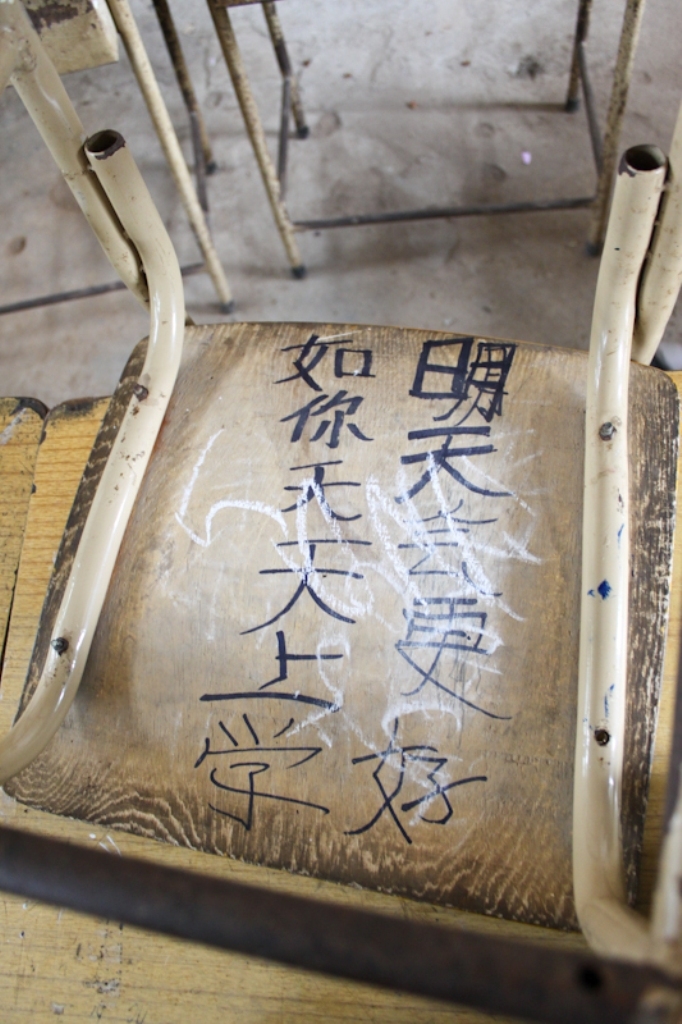 明天会更好
如你天天上学